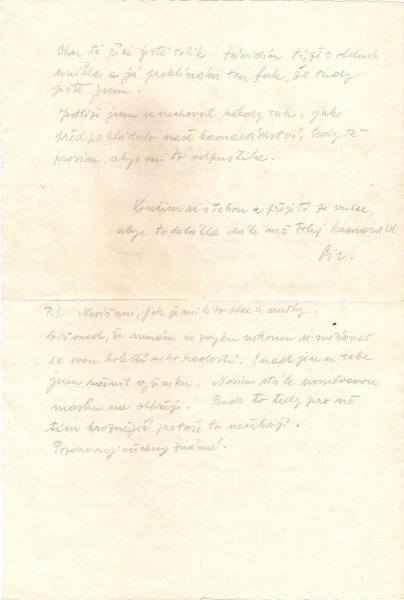 Chci ti říci ještě tolik. Závidím ti, žes odtud
unikla a já proklínám ten fakt, že tady
ještě jsem.
Jestliže jsem se nechoval někdy tak, jak
předpokládalo naše kamarádství, tedy tě
prosím, abys mi to odpustila.
Loučím se s tebou a přeji ti ze srdce,
abys to dotáhla dále než Tvůj kamarád
P.S. Neříkám, jak je mi líto otce a matky.
Víš snad, že nemám ve zvyku někomu se svěřovat
se svou bolestí nebo radostí. Snad jen u tebe
jsem učinil výjimku. Nosím stále usměvavou
masku na obličeji. Bude to tedy pro mě
tím hroznější protože to nečekají.
Pozdravuj všechny známé.